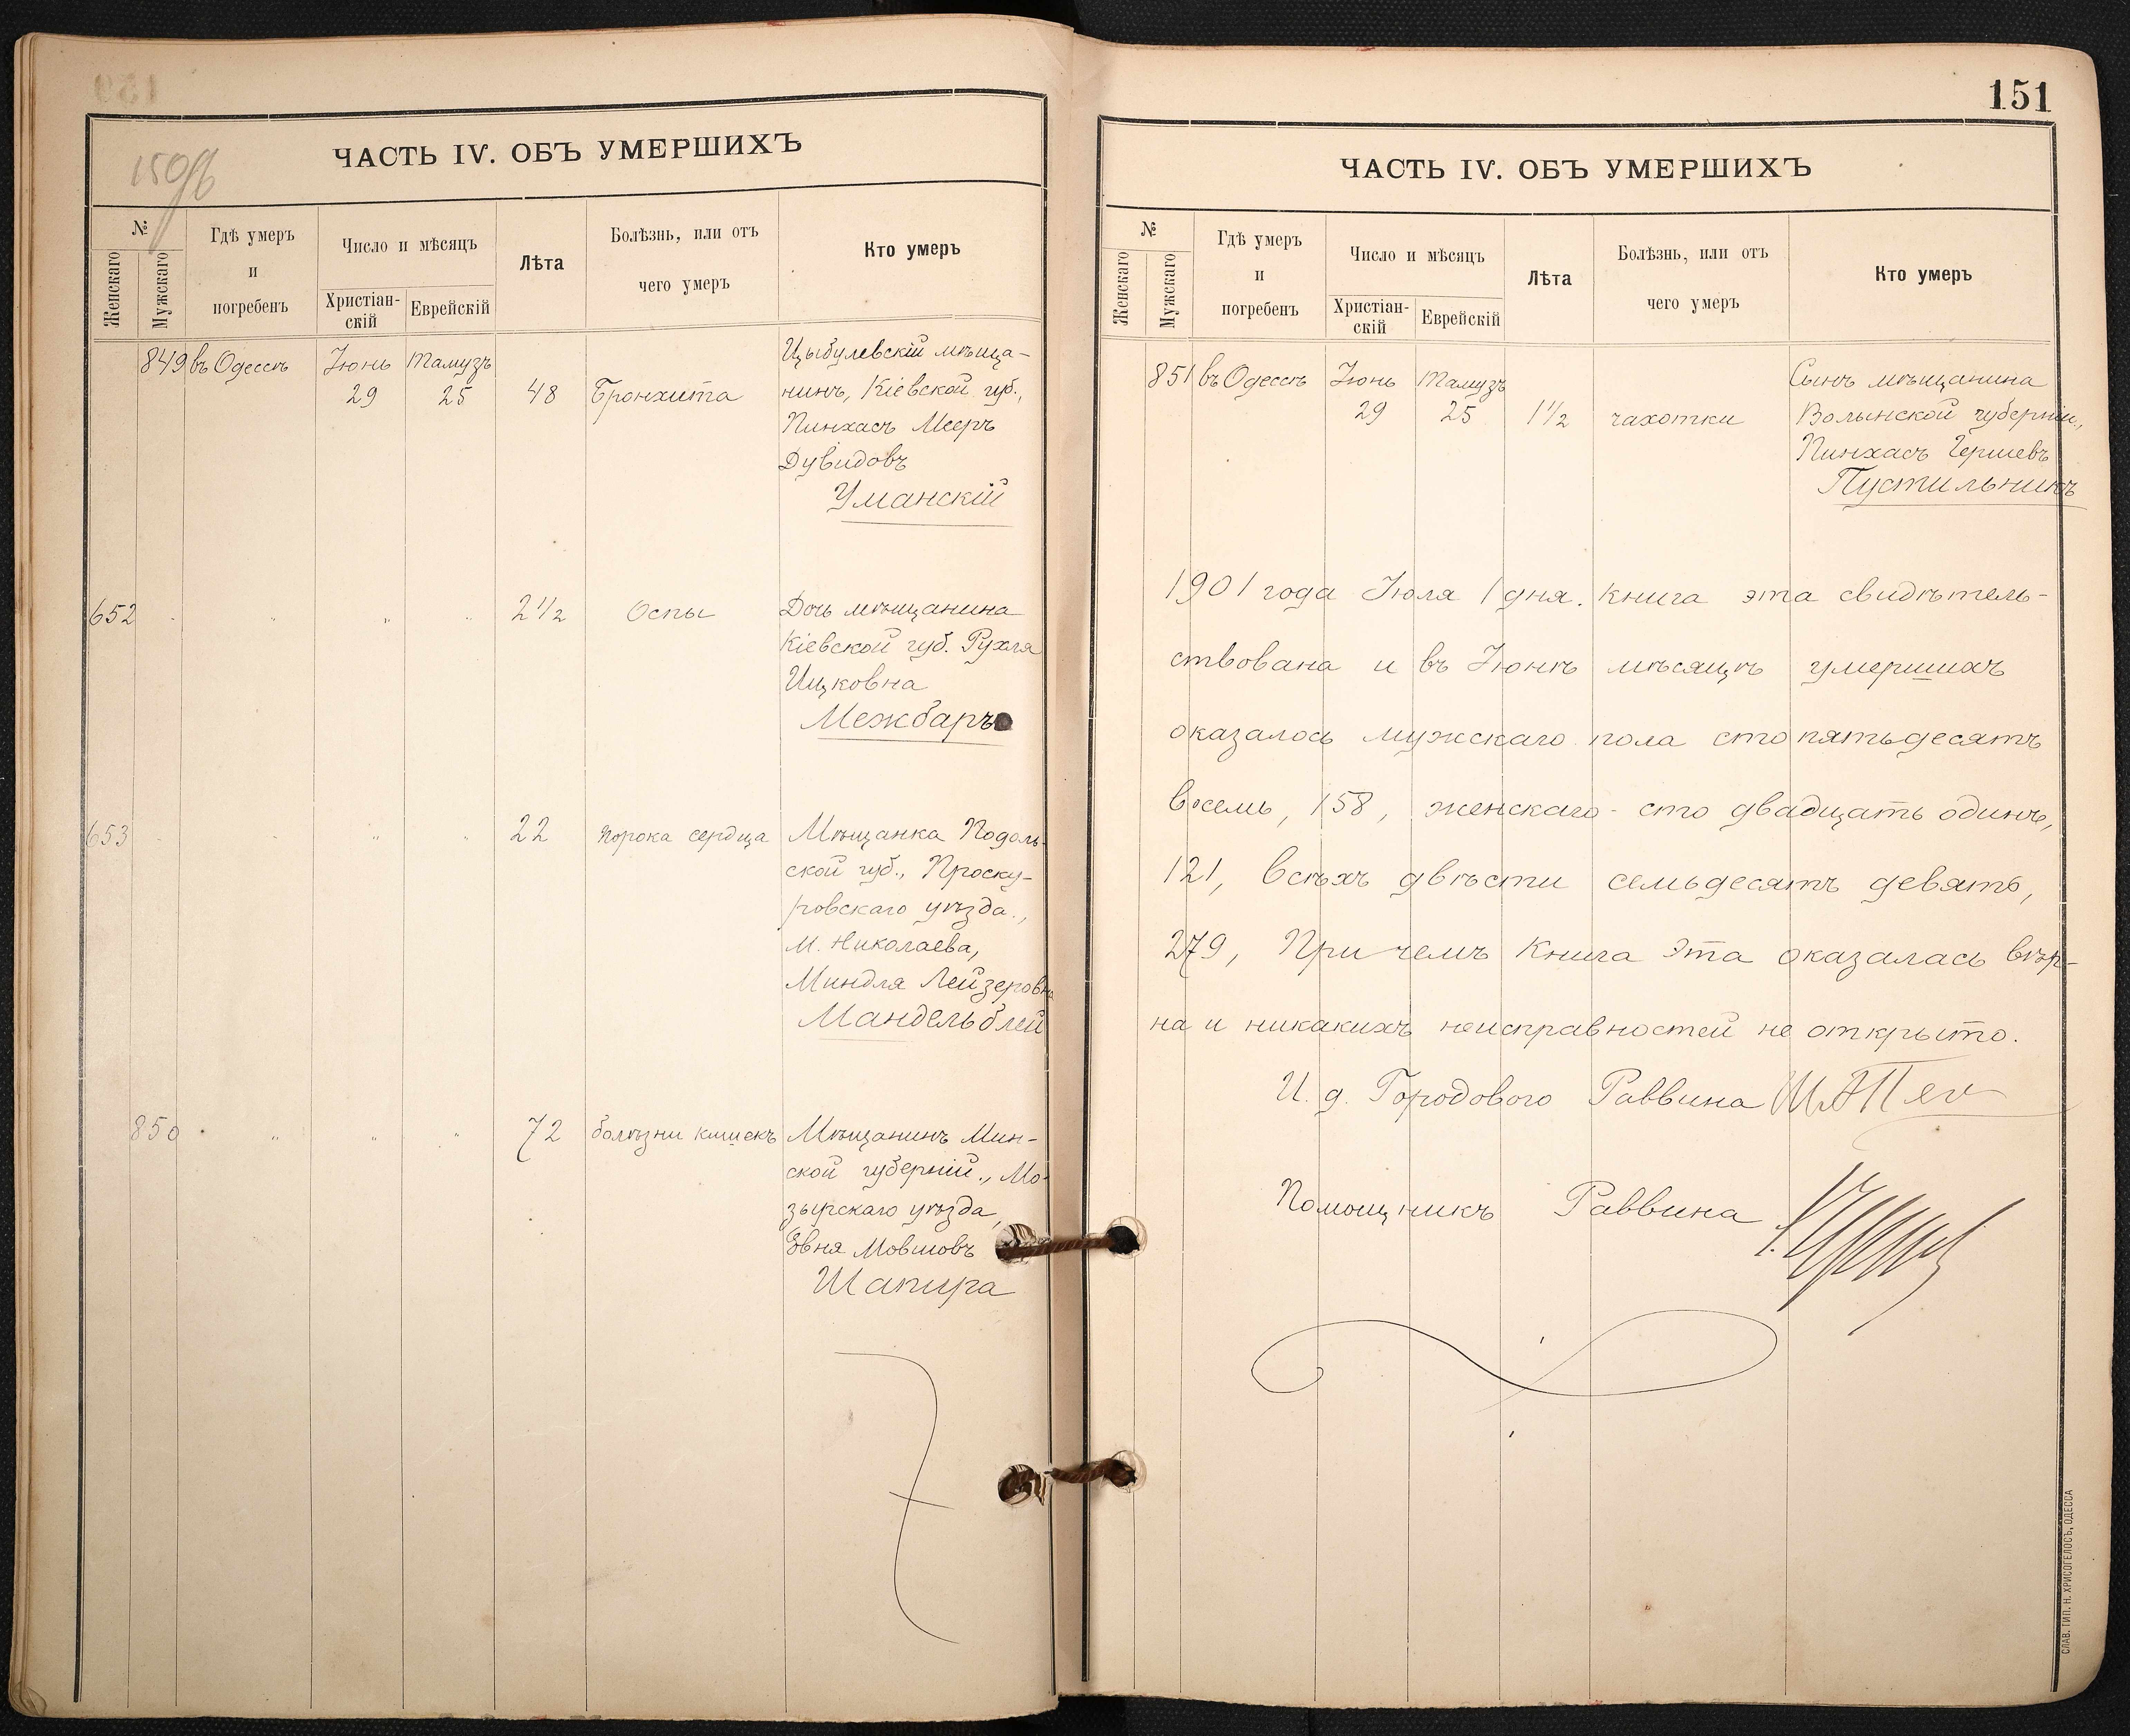 150об
ЧАСТЬ IV. ОБЪ УМЕРШИХЪ
№
Женскаго
Мужскаго
Гдѣ умеръ
и
погребенъ
Число и мѣсяцъ
Христіан-
скій
Еврейскій
Лѣта
Болѣзнь, или отъ
чего умеръ
Кто умеръ
849 въ Одессѣ Іюнь Тамузъ
29 25 48 Бронхита
Цыбулевскій мѣща-
нинъ, Кіевской губ.,
Пинхасъ Мееръ
Дувидовъ
Уманскій
652 " " " 2 1/2 Оспы
Дочь мѣщанина
Кіевской губ. Рухля
Ицковна
Межбаръ
653 " " " 22 порока сердца
Мѣщанка Подоль-
ской губ., Проску-
ровскаго уѣзда.,
м. Николаева,
Миндля Лейзеровна
Мандельблей
850 " " " 72 болѣзни кишекъ
Мѣщанинъ Мин-
ской губерній., Мо-
зырскаго уѣзда,
Эвня Мовшовъ
Шапира
151
ЧАСТЬ IV. ОБЪ УМЕРШИХЪ
№
Женскаго
Мужскаго
Гдѣ умеръ
и
погребенъ
Число и мѣсяцъ
Христіан-
скій
Еврейскій
Лѣта
Болѣзнь, или отъ
чего умеръ
Кто умеръ
851 въ Одессѣ Іюнь Тамузъ
29 25 1 1/2 чахотки
Сынъ мѣщанина
Волынской губерніи.,
Пинхасъ Гершевъ
Пустильникъ
1901 года Іюля 1 дня. Книга эта свидѣтель-
ствована и въ Іюнѣ мѣсяцѣ умершихъ
оказалось мужскаго пола сто пятьдесятъ
восемь, 158, женскаго - сто двадцать одинъ,
121, всѣхъ двѣсти семьдесятъ девять,
279, При чемъ Книга эта оказалась вѣр-
на и никакихъ неисправностей не открыто.
И. д. Городового Раввина
Помощникъ Раввина
СЛАВ. ТИП. Н. ХРИСОГЕЛОСЪ, ОДЕССА